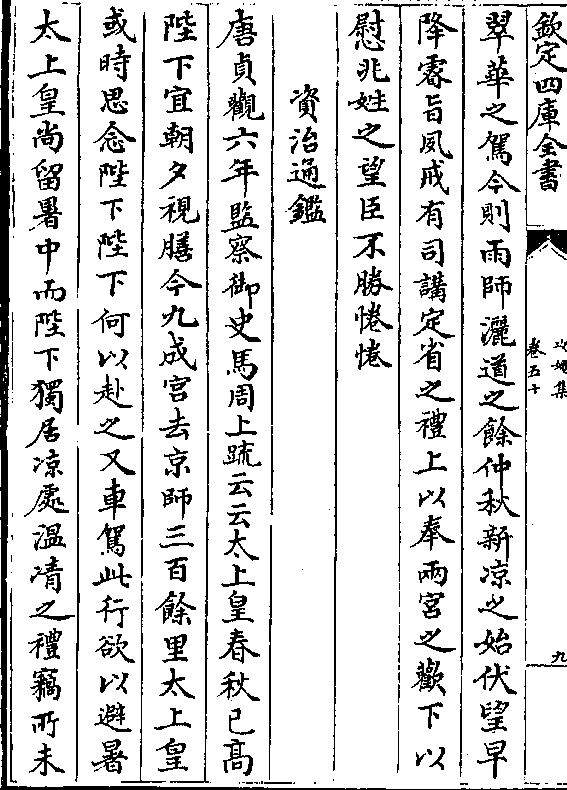 欽定四庫全書
攻媿集
卷五十
九
翠華之駕今則雨師灑道之餘仲秋新凉之始伏望早
降睿旨夙戒有司講定省之禮上以奉兩宮之歡下以
慰兆姓之望臣不勝惓惓
資治通鑑
唐貞觀六年監察御史馬周上䟽云云太上皇春秋已髙
陛下宜朝夕視膳今九成宮去京師三百餘里太上皇
或時思念陛下陛下何以赴之又車駕此行欲以避暑
太上皇尚留暑中而陛下獨居凉處温凊之禮竊所未